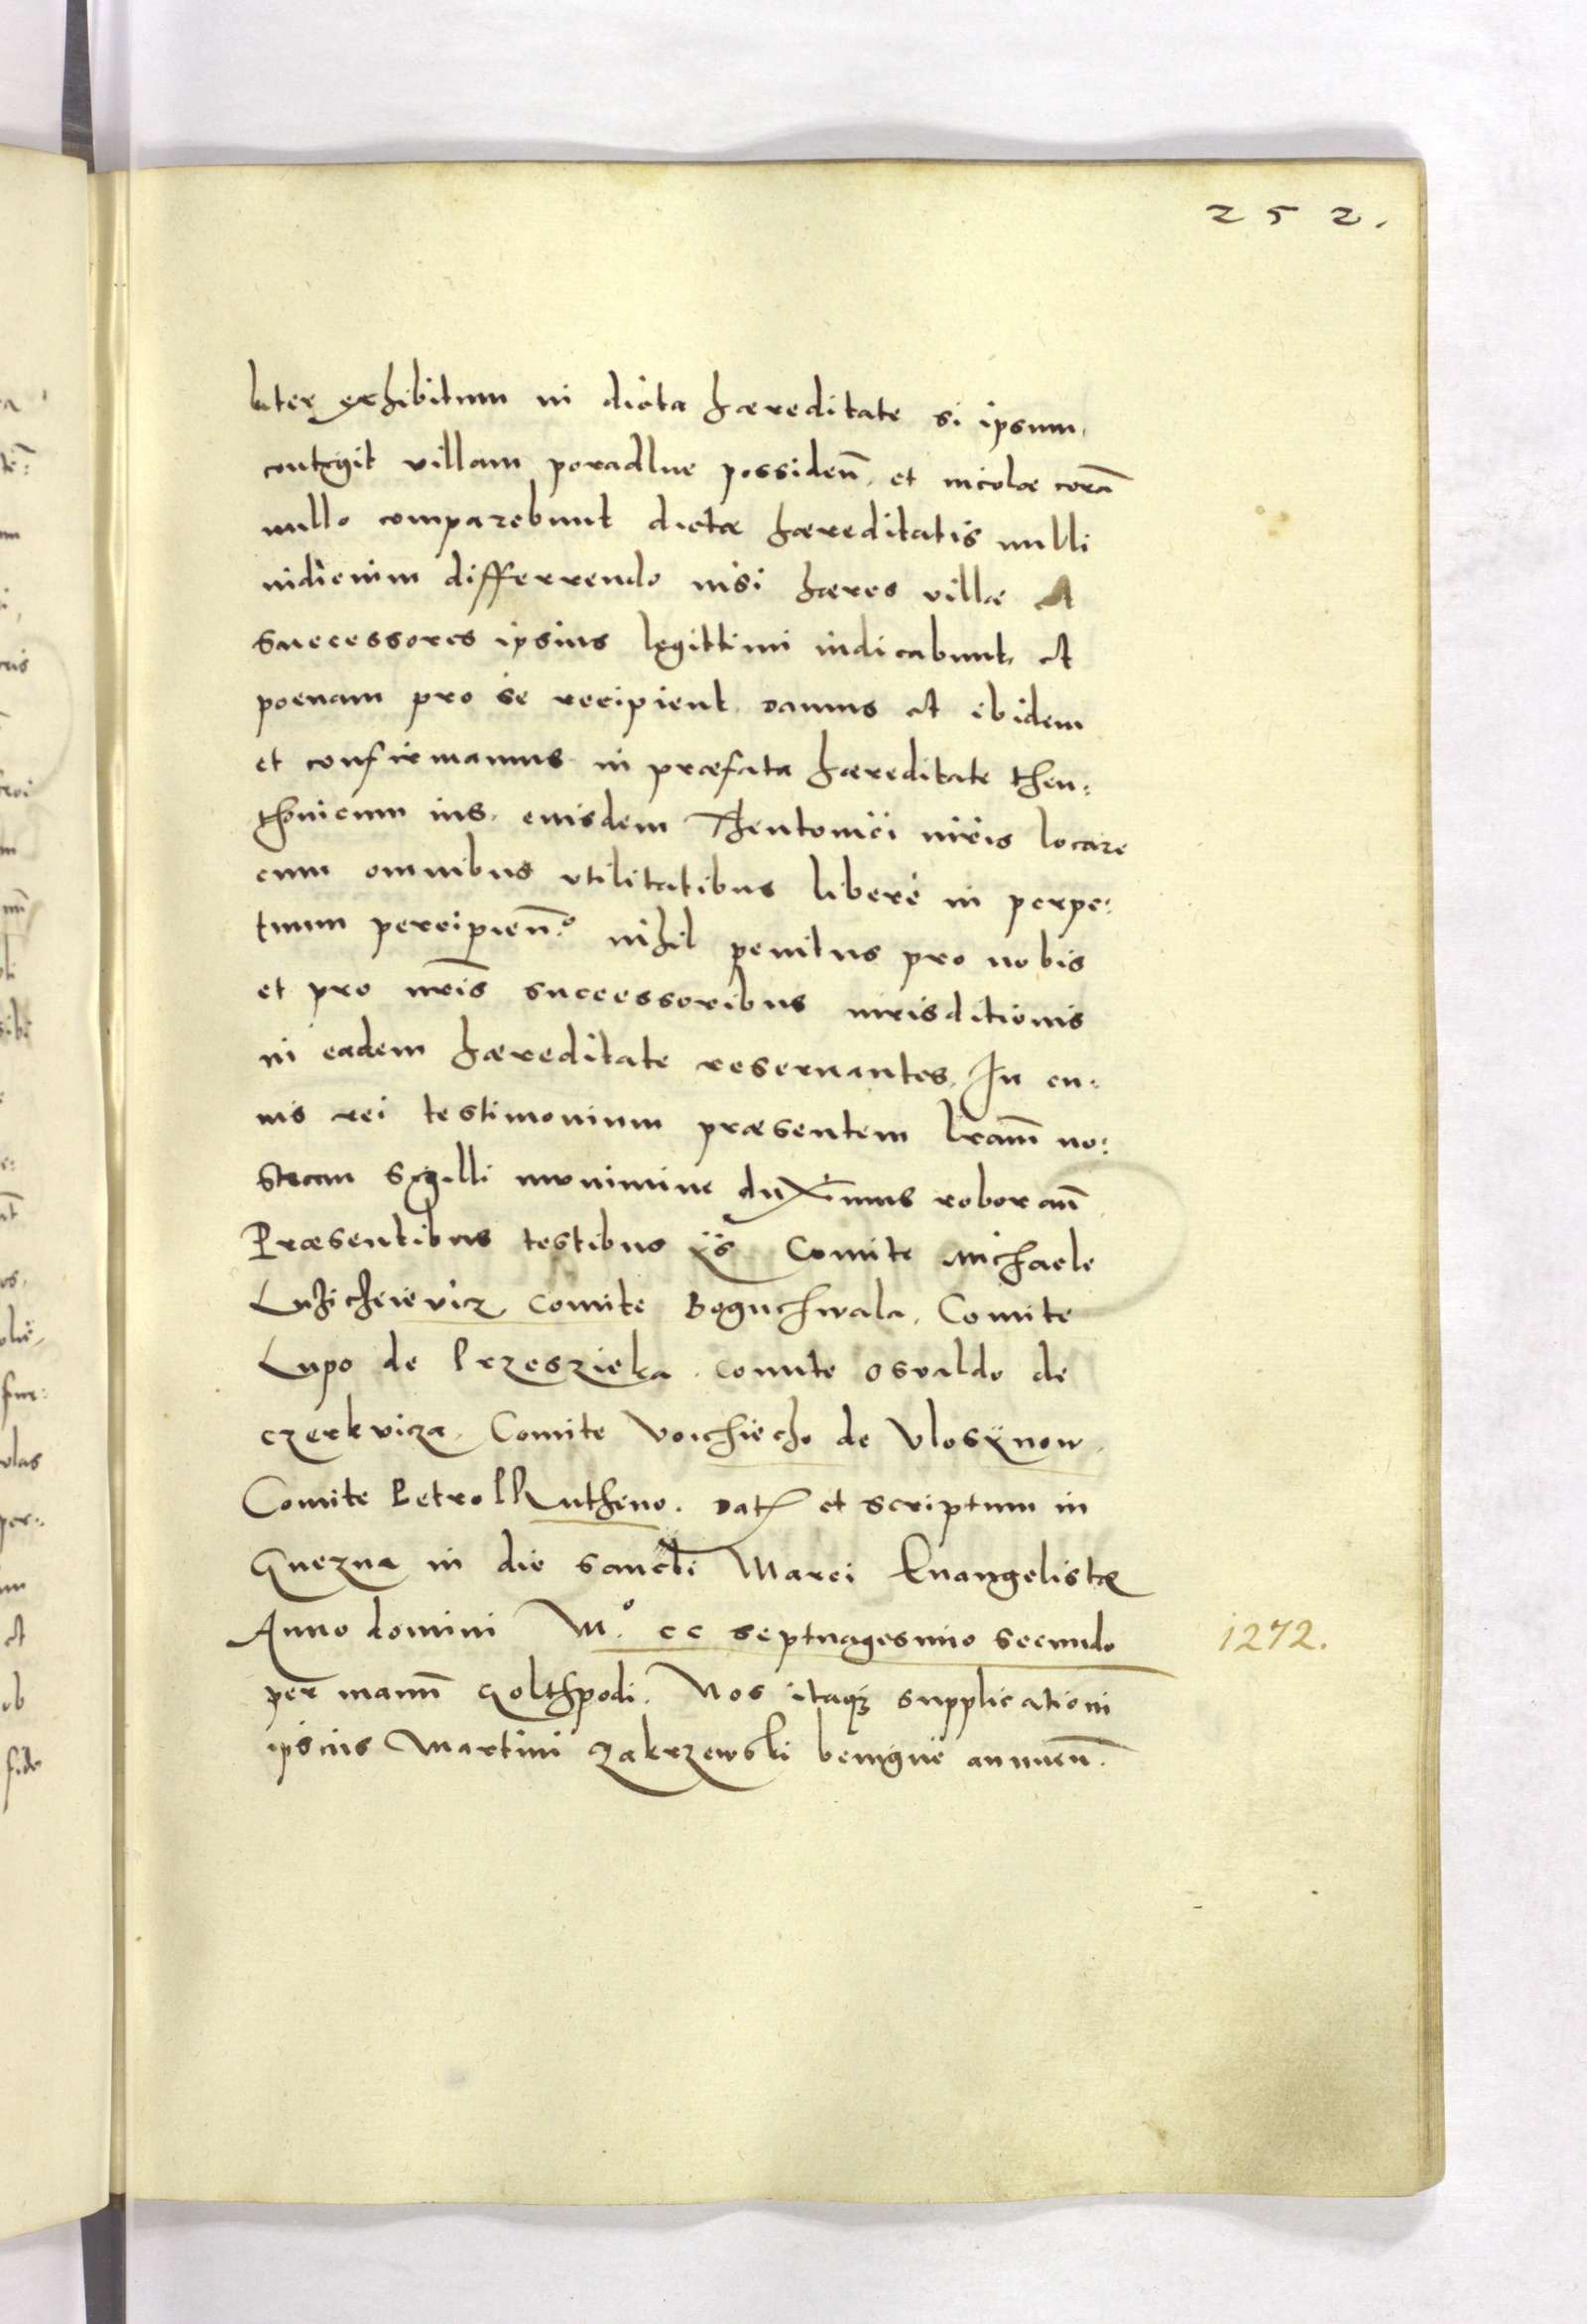 252.
liter exhibitum in dicta hæreditate si ipsum
contigit villam poradlne possidend̄. et incolæ corā
nullo comparebunt dictæ hæreditatis nulli
iudicium differrendo nisi hæres villæ et
successores ipsius legittimi iudicabunt et
poenam pro se recipient. Damus et ibidem
et confirmamus in præfata hæreditate theu:
thonicum ius. eiusdem Theutonici iuris locare
cum omnibus vtilitatibus liberè in perpe:
tuum percipien̄. nihil penitus pro nobis
et pro nr̄is successoribus iurisditionis
in eadem hæreditate reseruantes. In cu:
ius rei testimonium præsentem l̄ram̄ no:
stram sigilli munimine duximus roboran̄
Præsentibus testibus ÿs Comite Michaele
Comite Boguchwala. Comite
Lupo de Przeszieka. Comite Osvaldo de
czerkvicza. Comite Voichiecho de Vlosÿnow.
Comite Petro Rutheno. Dat̄ et scriptum in
Gnezna in die Sancti Marci Euangelistæ
Anno domini M.º cc septuagesimo secundo
1272.
per manū Golthpodi. Nos itaq̄ supplicationi
ipsius Martini Zakrzewski benignè annuen̄.